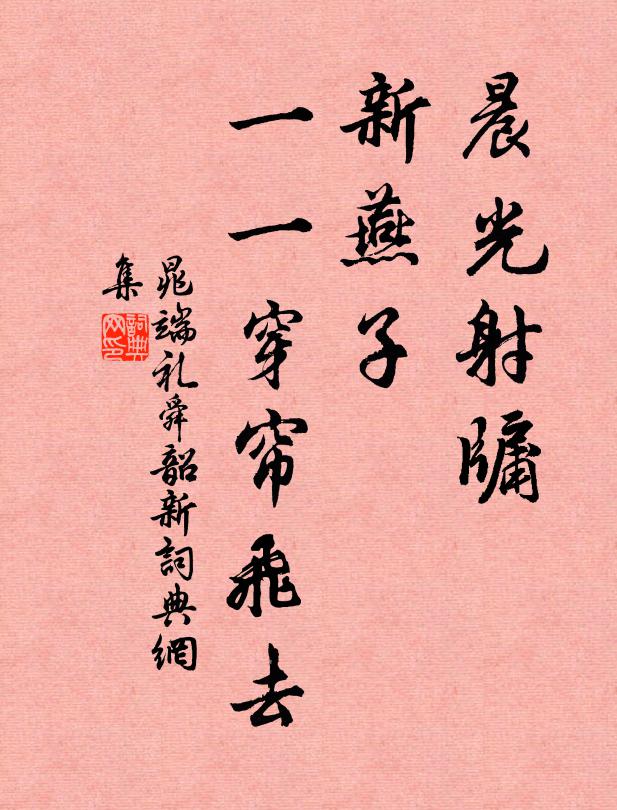 晨光射牖
新燕子
一一穿帘飛去
晁端礼舜韶新詞典網
集
詞典
网印